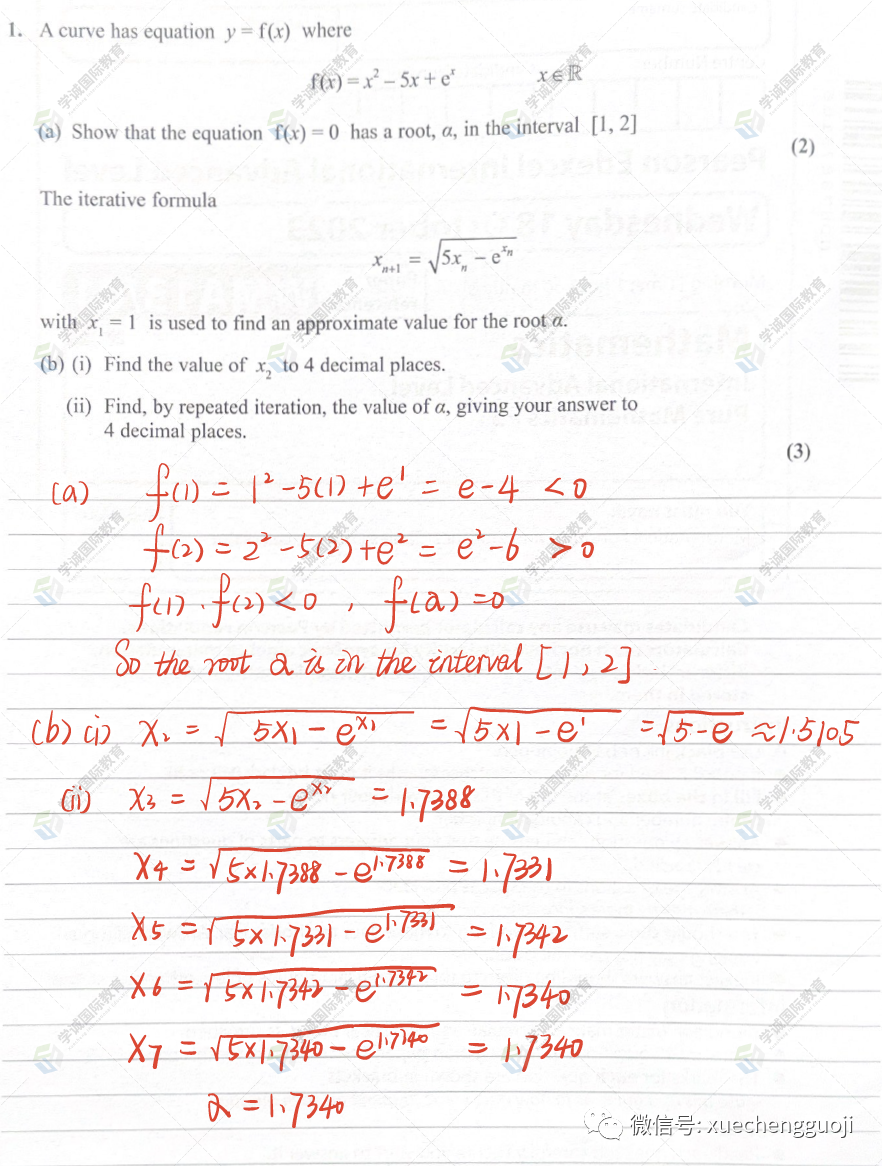 1. A curve has equation y = f(x) where
f(x) = x² – 5x + eˣ x ∈ ℝ
(a) Show that the equation f(x) = 0 has a root, α, in the interval [1, 2]
(2)
The iterative formula
xₙ₊₁ = √(5xₙ – e^(xₙ))
with x₁ = 1 is used to find an approximate value for the root α.
(b) (i) Find the value of x₂ to 4 decimal places.
(ii) Find, by repeated iteration, the value of α, giving your answer to
4 decimal places.
(3)
(a) f(1) = 1² - 5(1) + e¹ = e - 4 < 0
f(2) = 2² - 5(2) + e² = e² - 6 > 0
f(1) · f(2) < 0 , f(α) = 0
So the root α is in the interval [1, 2]
(b) (i) X₂ = √(5X₁ - e^(X₁)) = √(5×1 - e¹) = √(5 - e) ≈ 1.5105
(ii) X₃ = √(5X₂ - e^(X₂)) = 1.7388
X₄ = √(5×1.7388 - e^(1.7388)) = 1.7331
X₅ = √(5×1.7331 - e^(1.7331)) = 1.7342
X₆ = √(5×1.7342 - e^(1.7342)) = 1.7340
X₇ = √(5×1.7340 - e^(1.7340)) = 1.7340
α = 1.7340
微信号: xuechengguoji
学诚国际教育